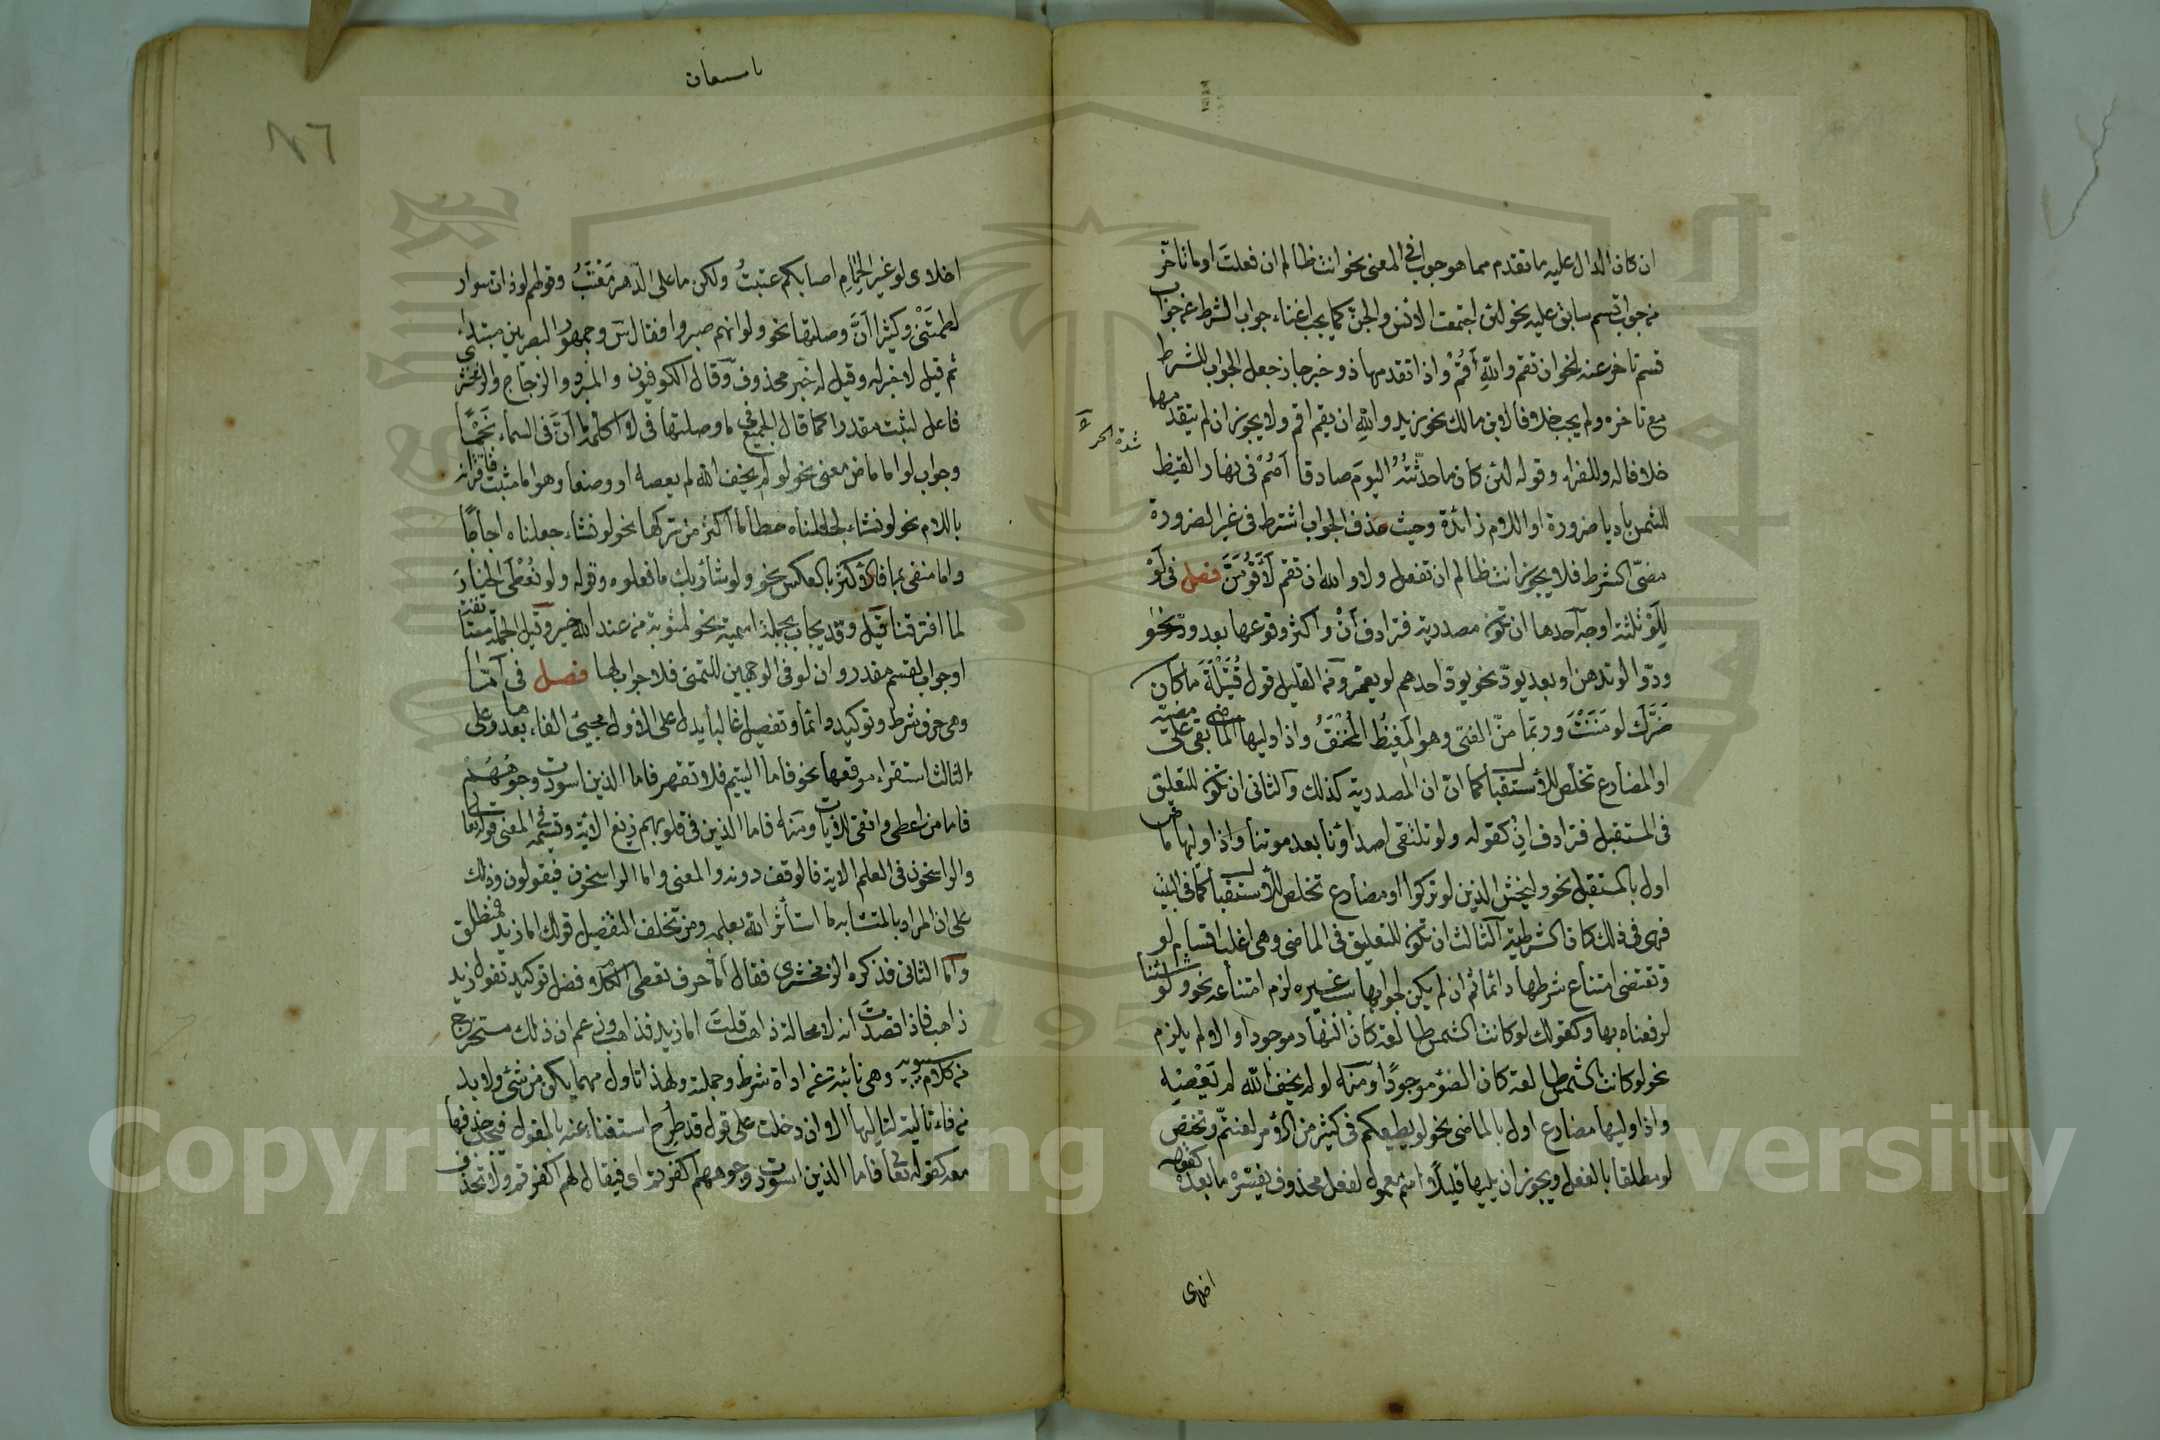 ان كان الدال عليه ما تقدم مما هو جواب في المعنى نحو انت ظالم ان فعلت او ما تأخر
من جواب قسم سابق عليه نحو لئن اجتمعت الانس والجن كما يجب اغناء جواب الشرط عن جواب
قسم تاخر عنه نحو ان تقم والله أقم واذا تقدمهما ذو خبر جاز جعل الجواب للشرط
مع تاخره ولم يجب خلافا لابن مالك نحو زيد والله ان يقم اقم ولا يجوز ان لم يتقدمهما
شدة الحر
خلافا له وللفراء وقوله لئن كان ما حدثته اليوم صادقا أصم في نهار القيظ
للشمس باديا ضرورة او اللام زائدة وحيث حذف الجواب اشترط في غير الضرورة
مضي الشرط فلا يجوز انت ظالم ان تفعل ولا والله ان تقم لأقومن فصل في لو
للو ثلثة اوجه احدها ان تكون مصدرية فترادف أن واكثر وقوعها بعد ود نحو
ودوا لو تدهن او بعد يود نحو يود احدهم لو يعمر ومن القليل قول قتيلة ما كان
ضرك لو مننت وربما منّ الفتى وهو المغيظ المحنق واذا وليها الماضي بقي على مضيه
او المضارع تخلص للأستقبال كما ان ان المصدرية كذلك والثاني ان تكون للتعليق
في المستقبل فترادف إن كقوله ولو تلتقي اصداؤنا بعد موتنا واذا وليها ماض
اول بالمستقبل نحو وليخش الذين لو تركوا او مضارع تخلص للأستقبال كما في البيت
فهي في ذلك كان الشرطية الثالث ان تكون للتعليق في الماضي وهي اغلب اقسام لو
وتقتضي امتناع شرطها دائما ثم ان لم يكن لجوابها سبب غيره لزم امتناعه نحو ولو شئنا
لرفعناه بها وكقولك لو كانت الشمس طالعة كان النهار موجودا والا لم يلزم
نحو لو كانت الشمس طالعة كان الضوء موجودًا ومنه لو لم يخف الله لم يعصه
واذا وليها مضارع اول بالماضي نحو لو يطيعكم في كثير من الأمر لعنتم وتختص
لو مطلقا بالفعل ويجوز ان يليها قليلًا اسم معمول لفعل محذوف يفسره ما بعده كقوله
اخلاى
با سمعان
اخلاى لو غير الحمام اصابكم عتبت ولكن ما على الدهر معتب وقولهم لو ذات سوار
لطمتني وكثيرا أنّ وصلتها نحو ولو انهم صبروا فقال س وجمهور البصريين مبتداء
ثم قيل لا خبر له وقيل له خبر محذوف وقال الكوفيون والمبرد والزجاج والزمخشري
فاعل لثبت مقدرا كما قال الجميع في ما وصلتها في لا اكلمه ما أنّ في السماء نجمًا
وجواب لو اما ماض معنى نحو لو لم يخف الله لم يعصه او وضعا وهو اما مثبت فاقترانه
باللام نحو لو نشاء لجعلناه حطاما اكثر من تركها نحو لو نشاء جعلناه اجاجا
واما منفي بما فالأكثر بالعكس نحو ولو شاء ربك ما فعلوه وقوله ولو نعطى الخيار
لما افترقنا قيل وقد يجاب بجملة اسمية نحو لمثوبة من عند الله خير وقيل الجملة مستانفة
او جواب لقسم مقدر وان لو في الوجهين للتمني فلا جواب لها فصل في أمّا
وهي حرف شرط وتوكيد دائما وتفصيل غالبا يدل على الأول مجيئ الفاء بعدها وعلى
الثالث استقراء موقعها نحو فاما اليتيم فلا تقهر فاما الذين اسودت وجوههم
فاما من اعطى واتقى الآيات ومنه فاما الذين في قلوبهم زيغ الاية وقسيمه في المعنى قوله تعالى
والراسخون في العلم الاية فالوقف دونه والمعنى واما الراسخون فيقولون وذلك
على ان المراد بالمتشابه ما استأثر الله بعلمه ومن تخلف التفصيل قولك اما زيد فمنطلق
وأما الثاني فذكره الزمخشري فقال أما حرف يعطي الكلام فضل توكيد تقول زيد
ذاهب فاذا قصدت انه لا محالة ذاهب قلت اما زيد فذاهب وزعم ان ذلك مستخرج
من كلام سيبويه وهي نائبة عن اداة شرط وجملة ولهذا تاول مهما يكن من شئ ولا بد
من فاء تالية لتاليها الا ان دخلت على قول قد طرح استغناء عنه بالمقول فيجب حذفها
معه كقوله تعالى فاما الذين اسودت وجوههم اكفرتم اى فيقال لهم اكفرتم ولا تحذف